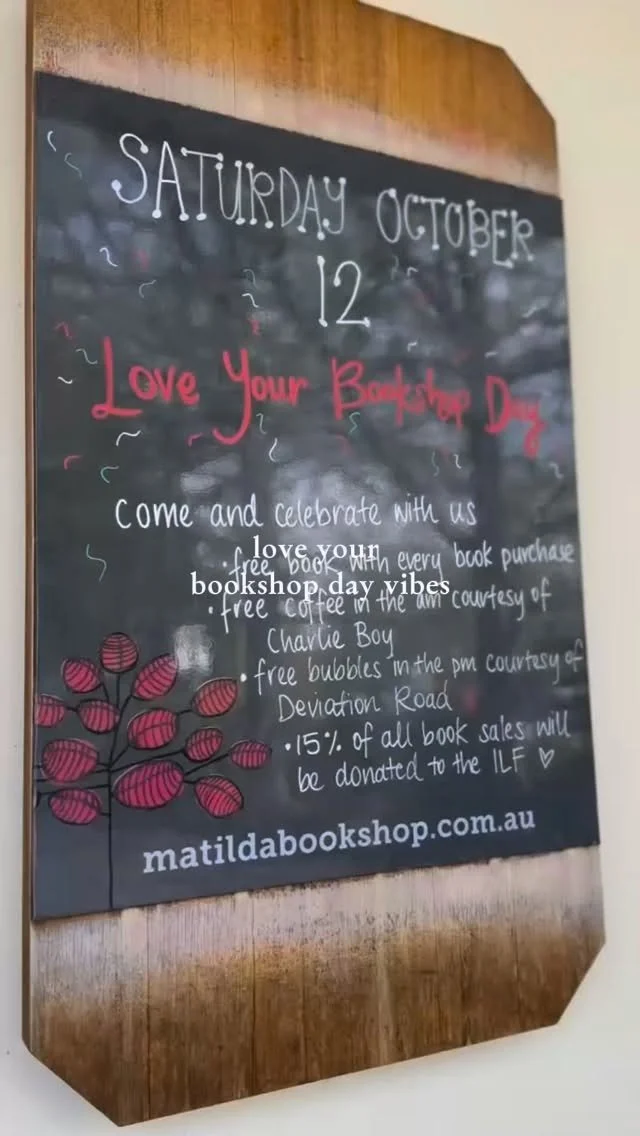 SATURDAY OCTOBER
12
Love Your Bookshop Day
Come and celebrate with us
• free book with every book purchase
love your
bookshop day vibes
• free coffee in the am courtesy of
Charlie Boy
• free bubbles in the pm courtesy of
Deviation Road
• 15% of all book sales will
be donated to the ILF ♡
matildabookshop.com.au